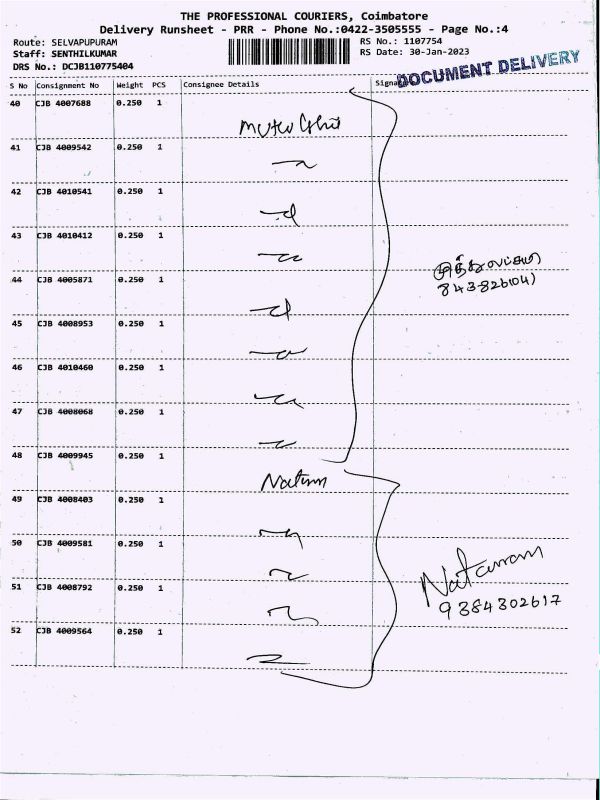 THE PROFESSIONAL COURIERS, Coimbatore
Delivery Runsheet - PRR - Phone No.:0422-3505555 - Page No.:4
Route: SELVAPUPURAM
Staff: SENTHILKUMAR
DRS No.: DCJB110775404
RS No.: 1107754
RS Date: 30-Jan-2023
DOCUMENT DELIVERY
S No Consignment No Weight PCS Consignee Details
40 CJB 4007688 0.250 1
41 CJB 4009542 0.250 1
42 CJB 4010541 0.250 1
43 CJB 4010412 0.250 1
44 CJB 4005871 0.250 1
முத்துலட்சுமி
45 CJB 4008953 0.250 1
46 CJB 4010460 0.250 1
47 CJB 4008068 0.250 1
48 CJB 4009945 0.250 1
49 CJB 4008403 0.250 1
50 CJB 4009581 0.250 1
51 CJB 4008792 0.250 1
9384302617
52 CJB 4009564 0.250 1